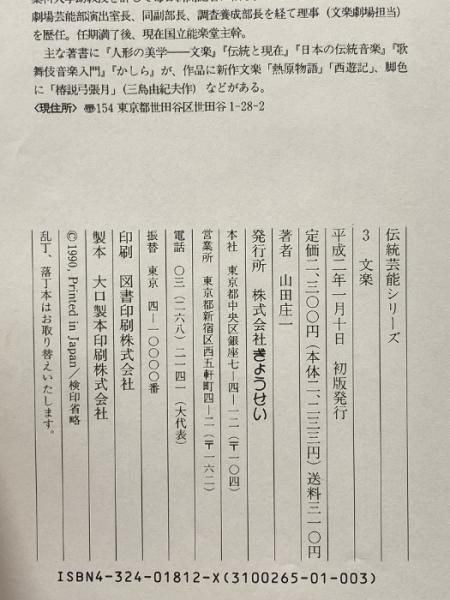 劇場芸能部演出室長、同副部長、調査養成部長を経て理事（文楽劇場担当）
を歴任。任期満了後、現在国立能楽堂主幹。
主な著書に『人形の美学――文楽』『伝統と現在』『日本の伝統音楽』『歌
舞伎音楽入門』『かしら』が、作品に新作文楽「熱原物語」「西遊記」、脚色
に「椿説弓張月」（三島由紀夫作）などがある。
〈現住所〉〠154 東京都世田谷区世田谷1-28-2
伝統芸能シリーズ
3 文楽
平成二年一月十日 初版発行
定価二、三〇〇円（本体二、二三三円）送料三一〇円
著者 山田庄一
発行所 株式会社ぎょうせい
本社 東京都中央区銀座七―四―一二（〒一〇四）
営業所 東京都新宿区西五軒町四―二（〒一六二）
電話 〇三（二六八）二一四一（大代表）
振替 東京 四―一〇〇〇〇番
印刷 図書印刷株式会社
製本 大口製本印刷株式会社
©1990, Printed in Japan／検印省略
乱丁、落丁本はお取り替えいたします。
ISBN4-324-01812-X(3100265-01-003)